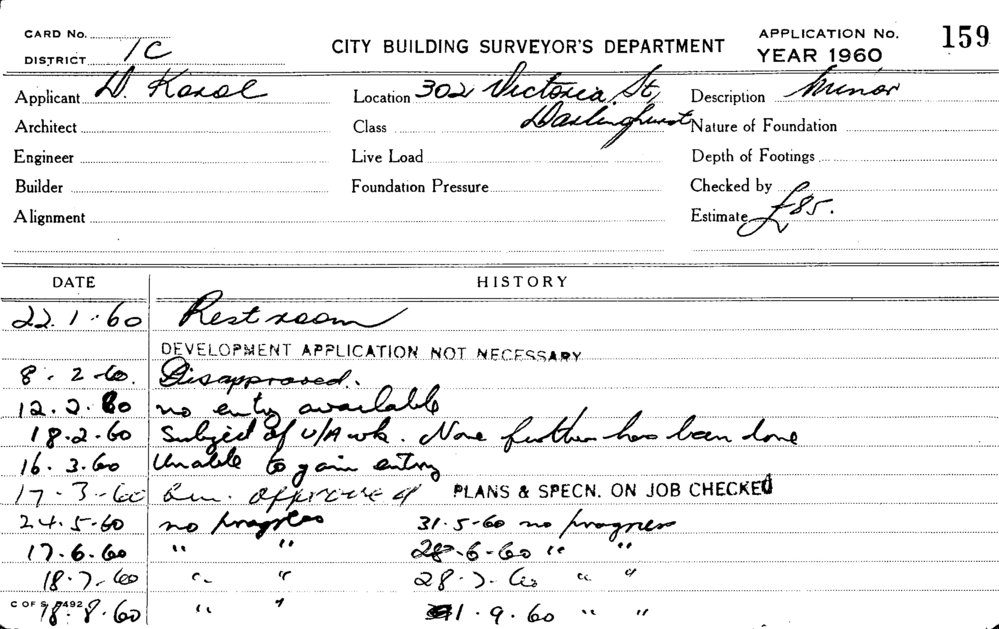 CARD No.
DISTRICT 1C
CITY BUILDING SURVEYOR'S DEPARTMENT
APPLICATION No. 159
YEAR 1960
Applicant D. Karol Location 302 Victoria St, Description Minor
Architect Class Darlinghurst Nature of Foundation
Engineer Live Load Depth of Footings
Builder Foundation Pressure Checked by
Alignment Estimate £85.
DATE HISTORY
22.1.60 Rest room
DEVELOPMENT APPLICATION NOT NECESSARY
8.2.60. Disapproved.
12.2.60 no entry available
18.2.60 Subject of U/A wk. None further has been done
16.3.60 Unable to gain entry
17-3-60 approved PLANS & SPECN. ON JOB CHECKED
24.5.60 no progress 31.5-60 no progress
17.6.60 " " 28.6-60 " "
18.7.60 " " 28.7.60 " "
C OF S 18.8.60 " " 1.9.60 " "